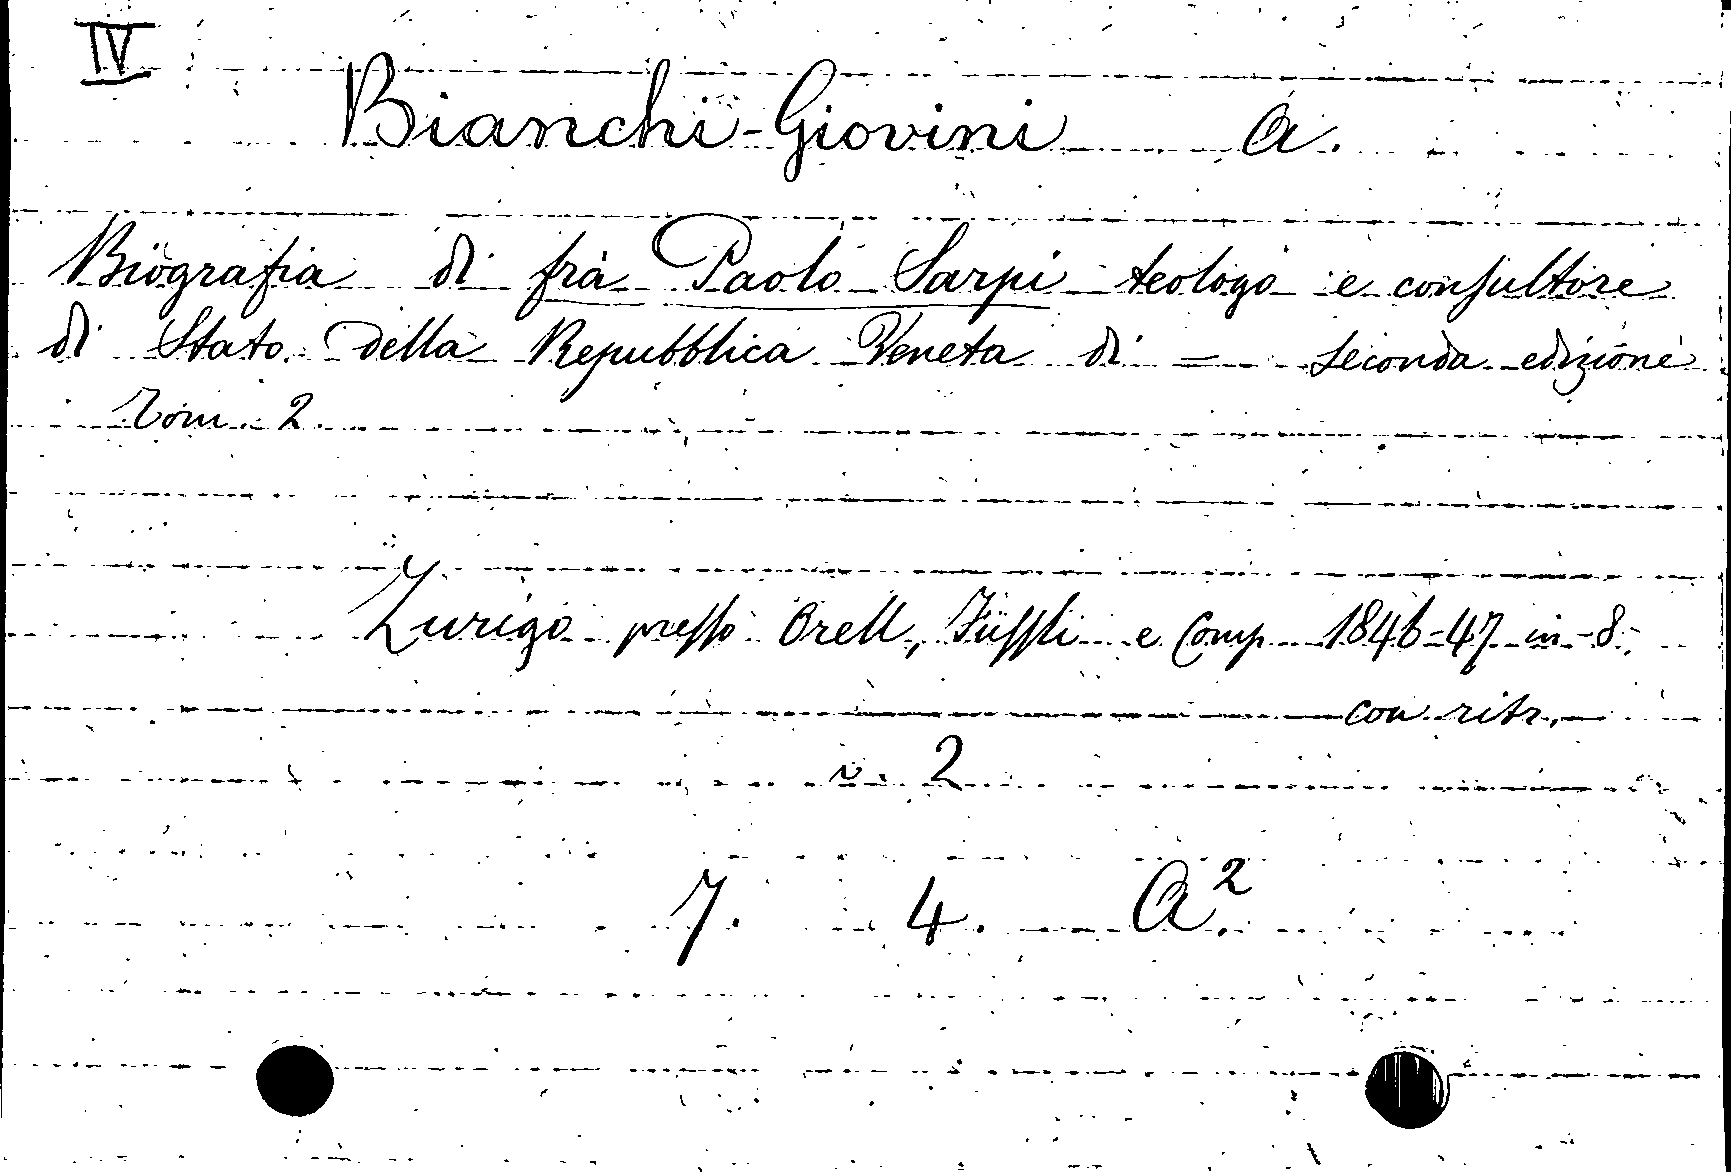 IV
Bianchi-Giovini A.
Biografia di frà Paolo Sarpi teologo e consultore
di Stato della Repubblica Veneta di = seconda edizione
Tom. 2.
Zurigo presso Orell, Füssli e Comp 1846-47 in-8.
con ritr.
v. 2
7. 4. A².